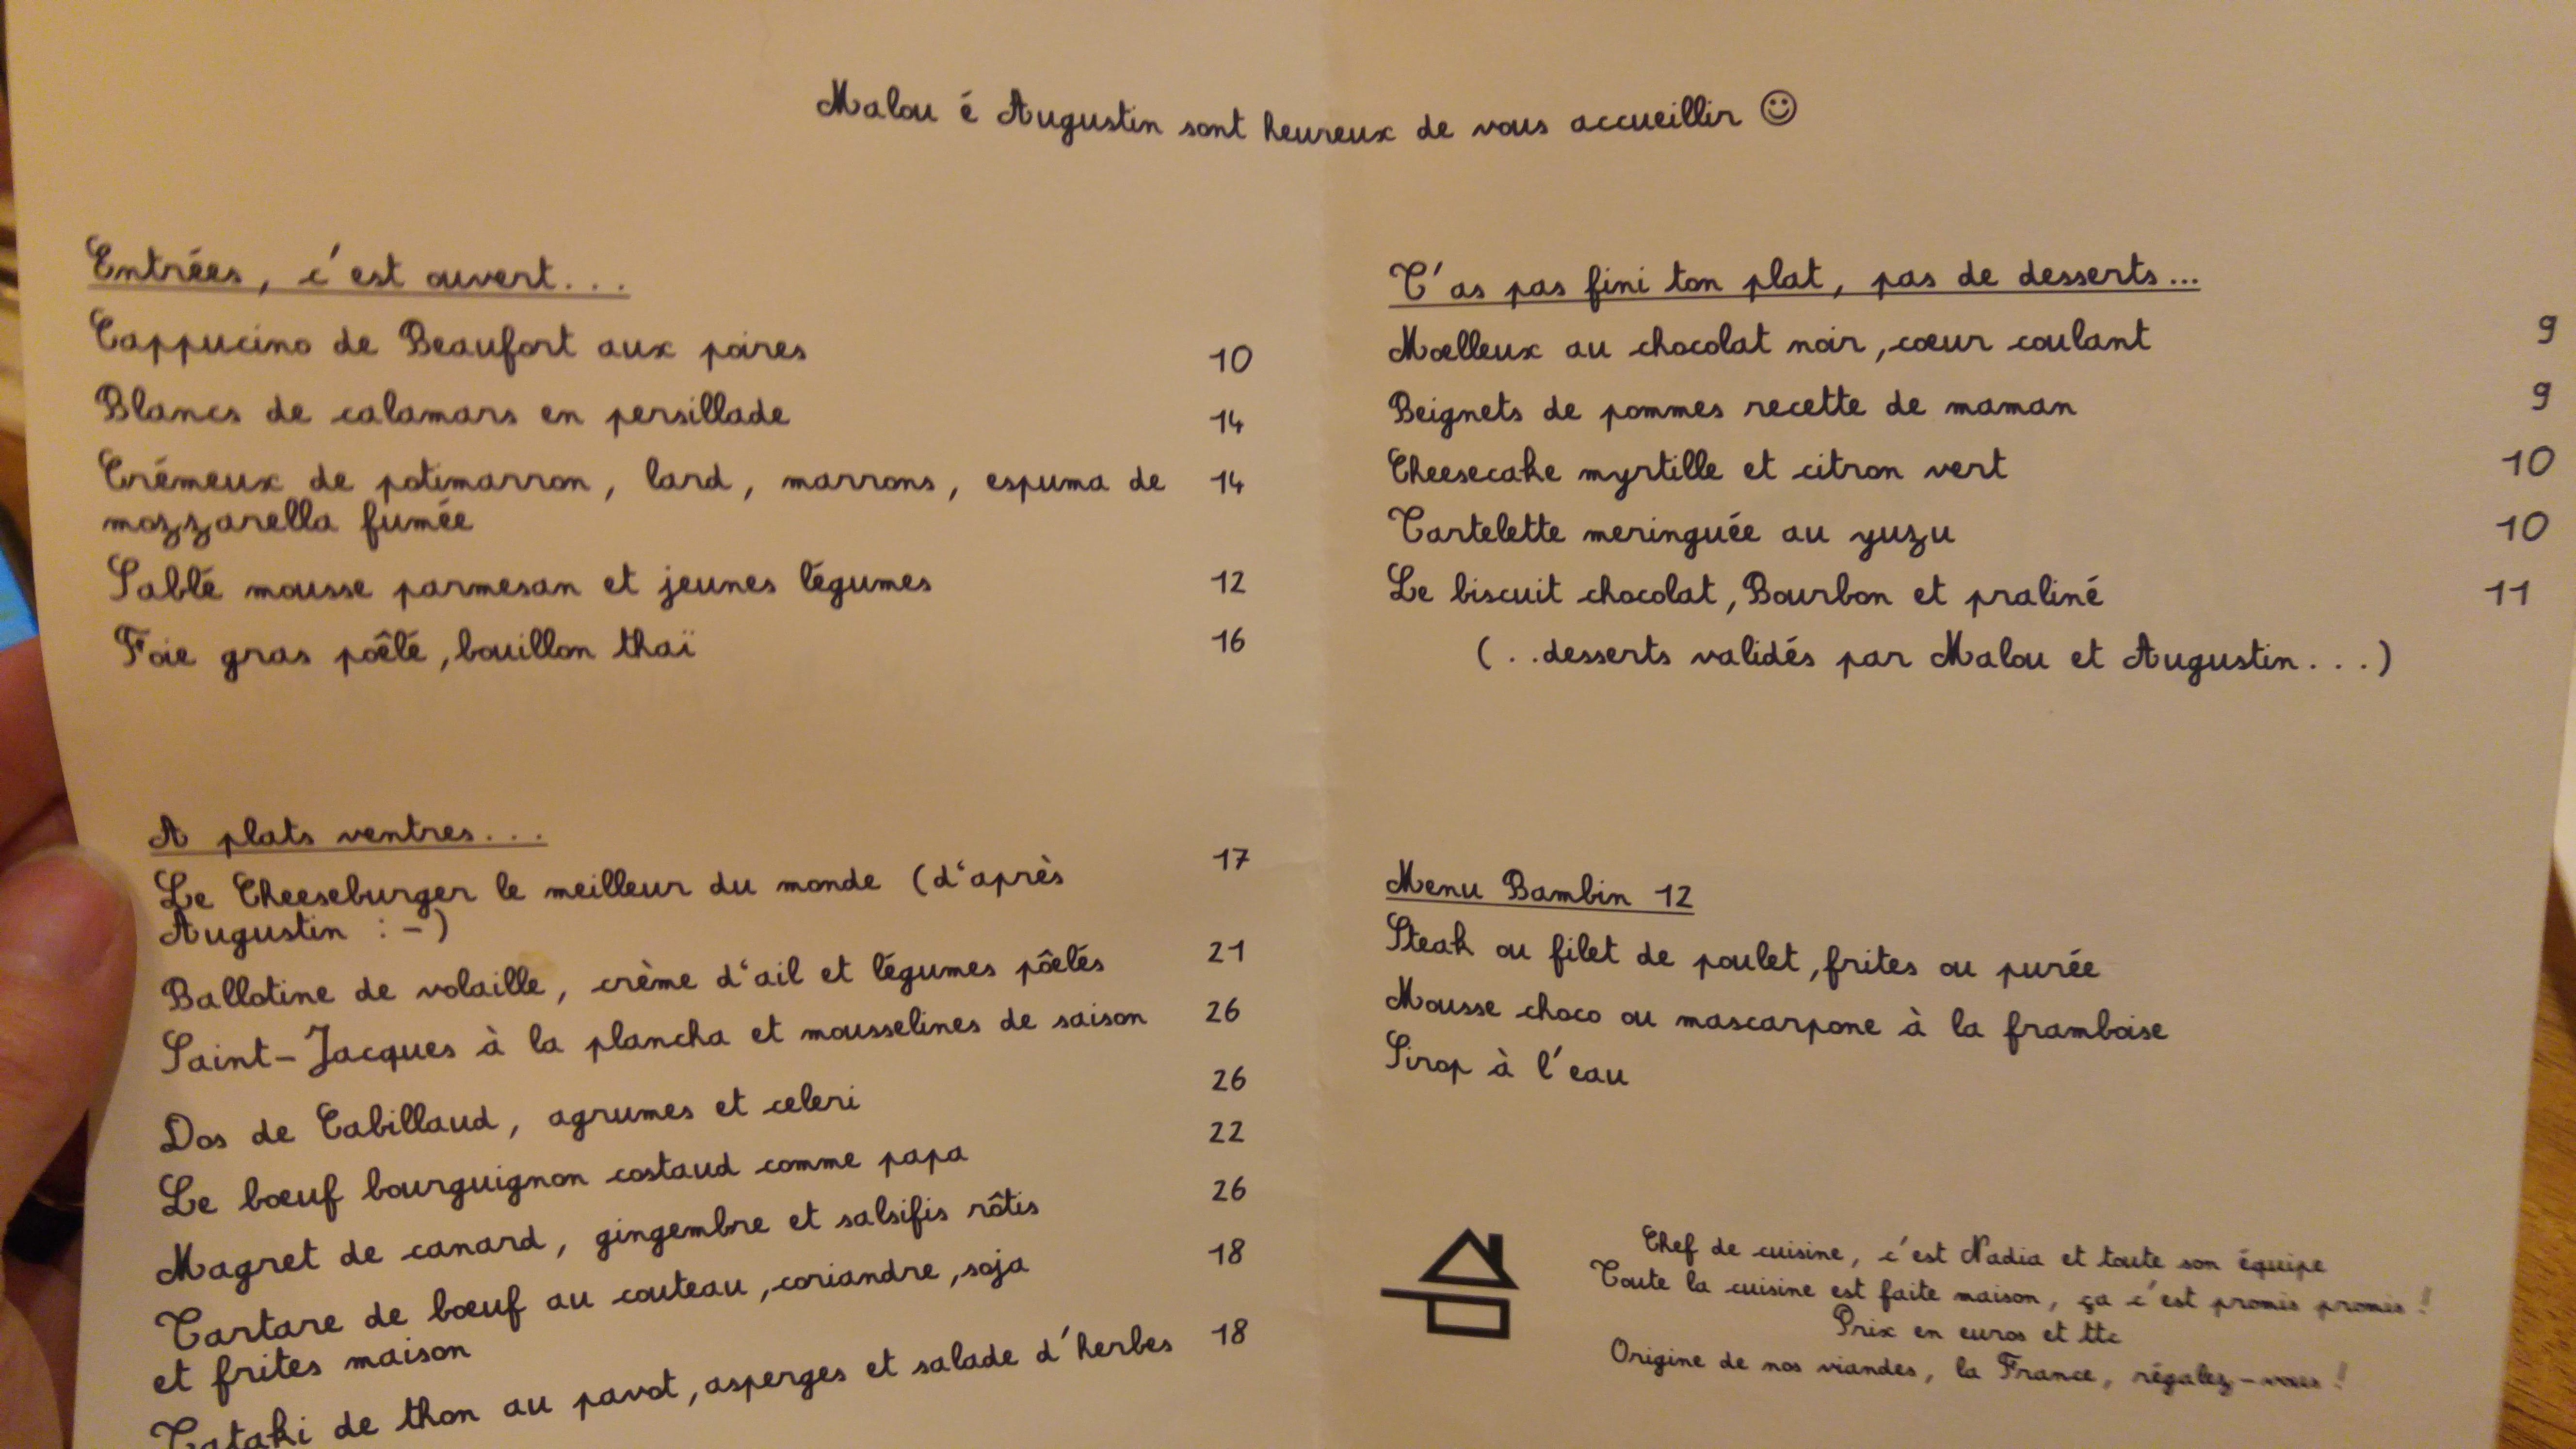 Malou é Augustin sont heureux de vous accueillir ☺
Entrées, c'est ouvert...
Cappucino de Beaufort aux poires 10
Blancs de calamars en persillade 14
Crémeux de potimarron, lard, marrons, espuma de 14
mozzarella fumée
Sablé mousse parmesan et jeunes légumes 12
Foie gras poêlé, bouillon thaï 16
A plats ventres...
Le Cheeseburger le meilleur du monde (d'après 17
Augustin :-)
Ballotine de volaille, crème d'ail et légumes pôelés 21
Saint-Jacques à la plancha et mousselines de saison 26
Dos de Cabillaud, agrumes et celeri 26
Le bœuf bourguignon costaud comme papa 22
Magret de canard, gingembre et salsifis rôtis 26
Tartare de bœuf au couteau, coriandre, soja 18
et frites maison
Tataki de thon au pavot, asperges et salade d'herbes 18
T'as pas fini ton plat, pas de desserts...
Moelleux au chocolat noir, cœur coulant 9
Beignets de pommes recette de maman 9
Cheesecake myrtille et citron vert 10
Tartelette meringuée au yuzu 10
Le biscuit chocolat, Bourbon et praliné 11
(..desserts validés par Malou et Augustin...)
Menu Bambin 12
Steak ou filet de poulet, frites ou purée
Mousse choco ou mascarpone à la framboise
Sirop à l'eau
Chef de cuisine, c'est Nadia et toute son équipe
Toute la cuisine est faite maison, ça c'est promis promis !
Prix en euros et ttc
Origine de nos viandes, la France, régalez-vous !